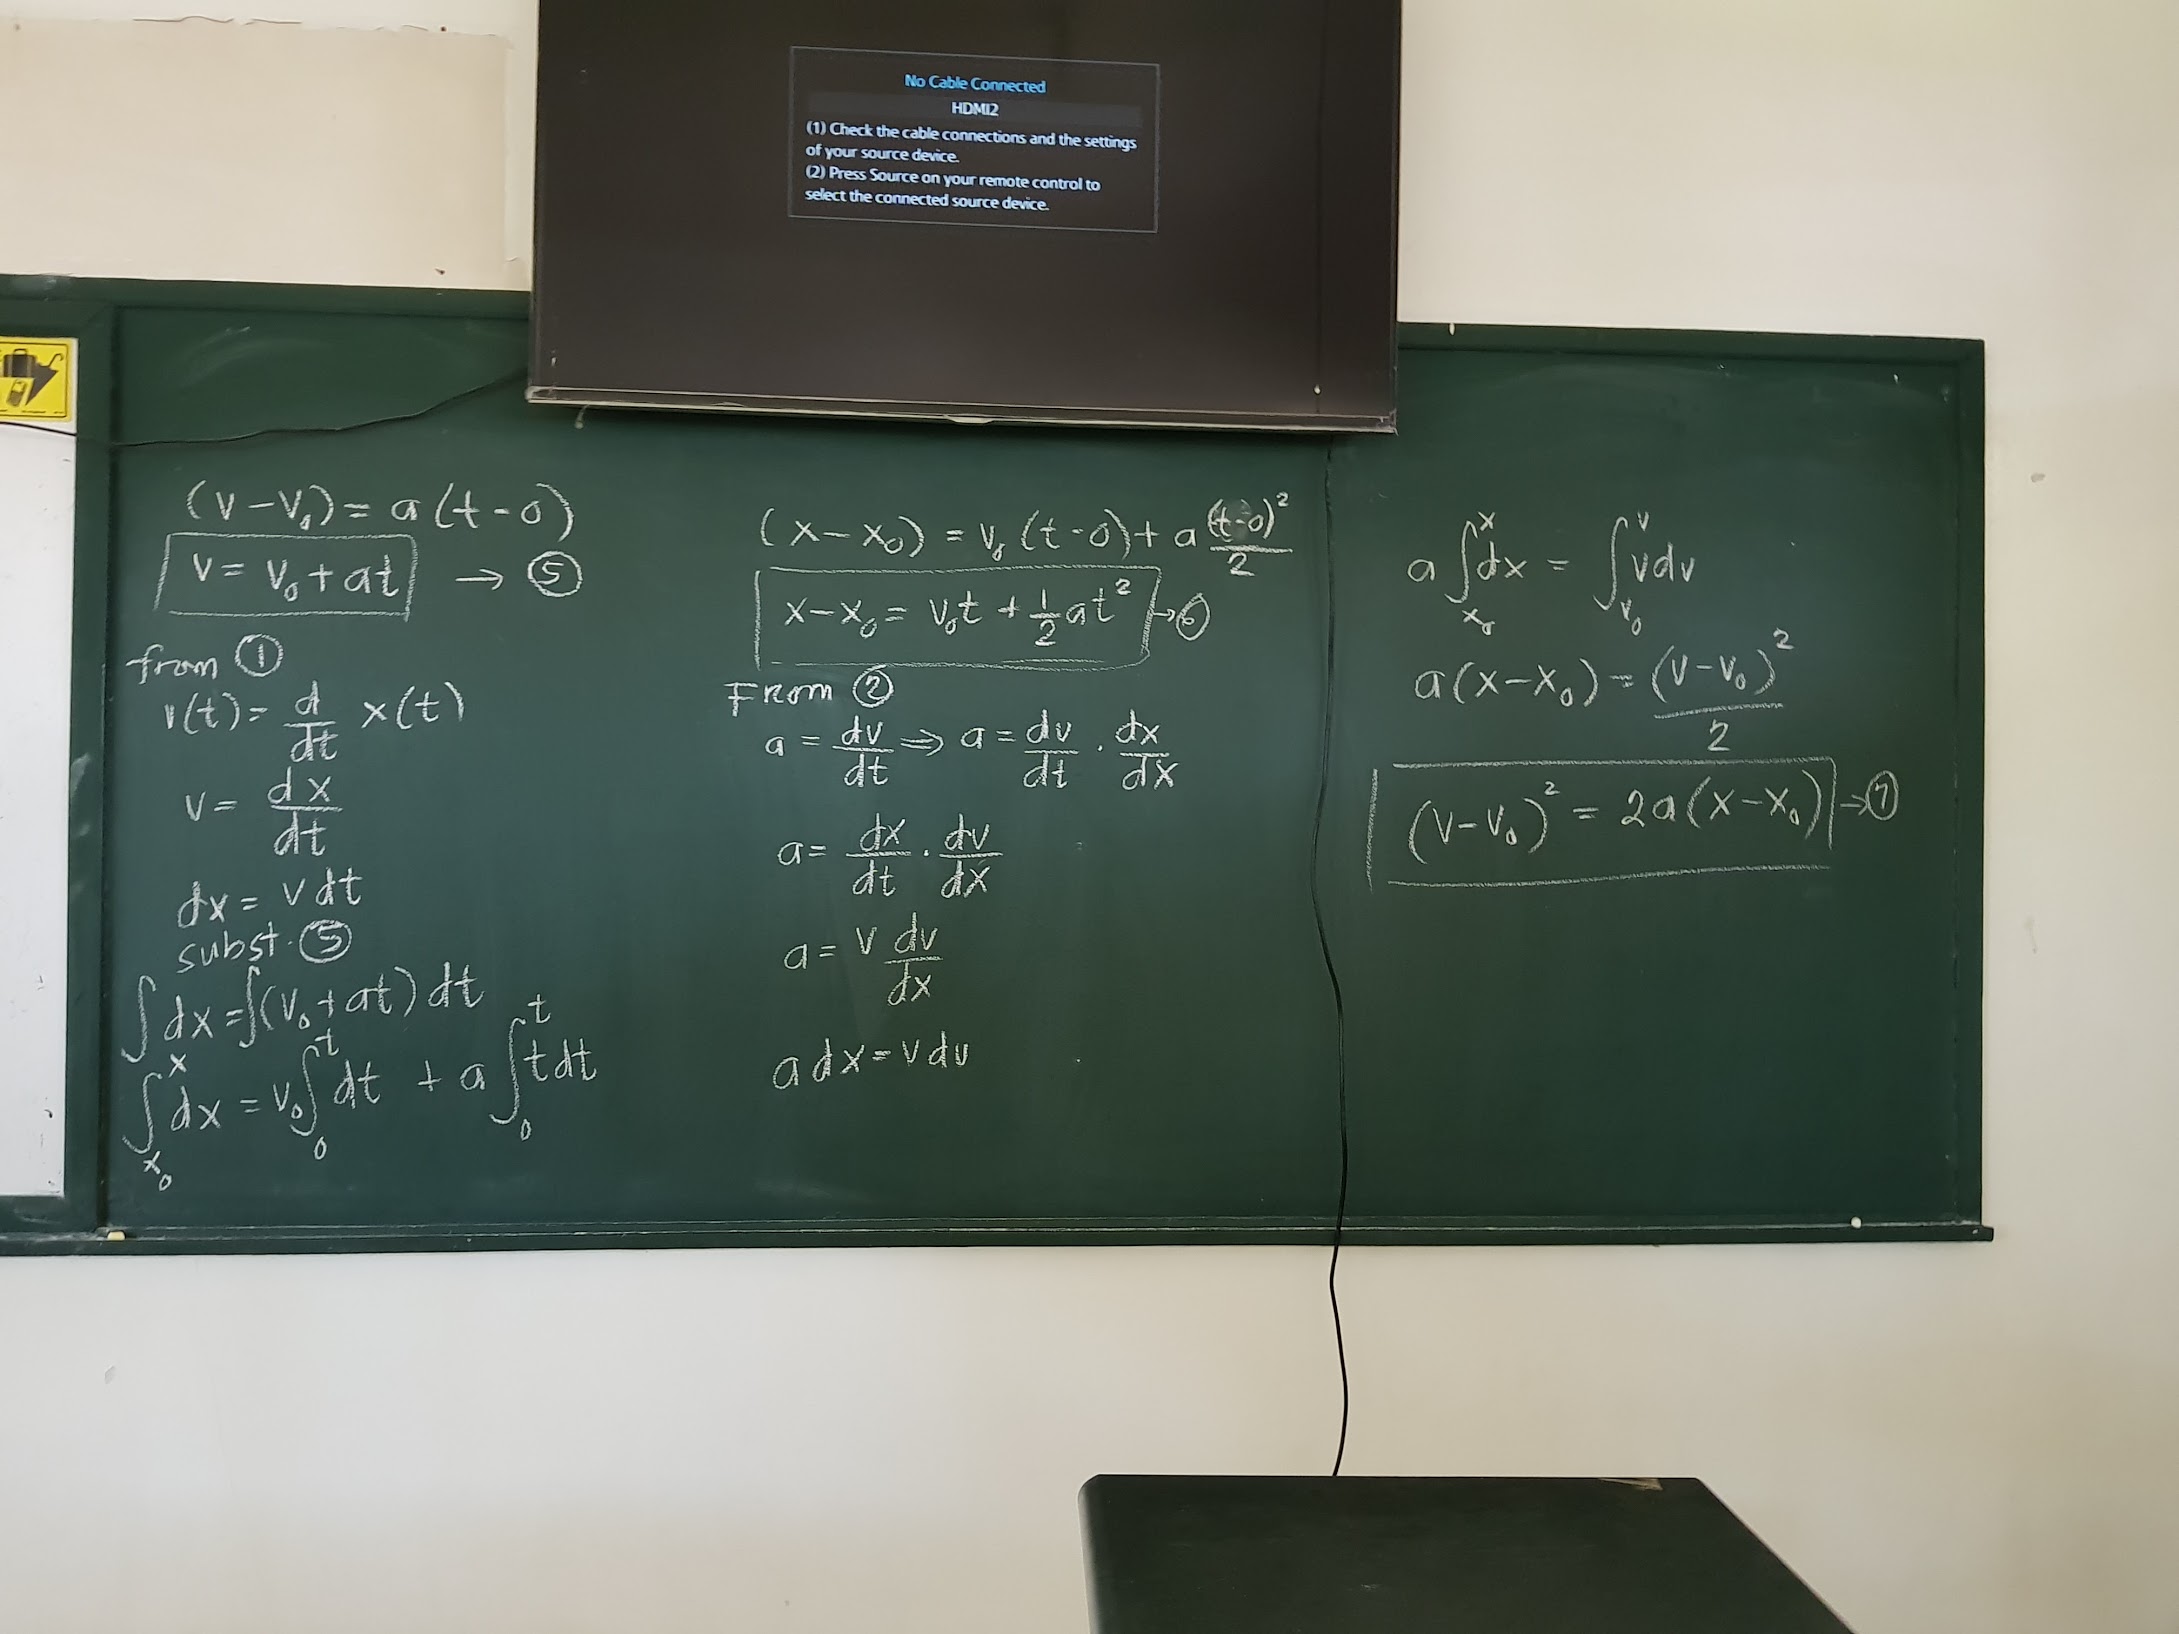 No Cable Connected
HDMI2
(1) Check the cable connections and the settings
of your source device.
(2) Press Source on your remote control to
select the connected source device.
(v-v₀) = a(t-0)
v = v₀ + at → ⑤
from ①
v(t) = d/dt x(t)
v = dx/dt
dx = v dt
subst. ⑤
∫dx = ∫(v₀ + at) dt
∫ₓ₀ˣ dx = v₀ ∫₀ᵗ dt + a ∫₀ᵗ t dt
(x-x₀) = v₀(t-0) + a (t-0)²/2
x-x₀ = v₀t + 1/2 at² → ⑥
From ②
a = dv/dt ⇒ a = dv/dt · dx/dx
a = dx/dt · dv/dx
a = v dv/dx
a dx = v dv
a ∫ₓ₀ˣ dx = ∫ᵥ₀ᵛ v dv
a(x-x₀) = (v-v₀)²/2
(v-v₀)² = 2a(x-x₀) → ⑦